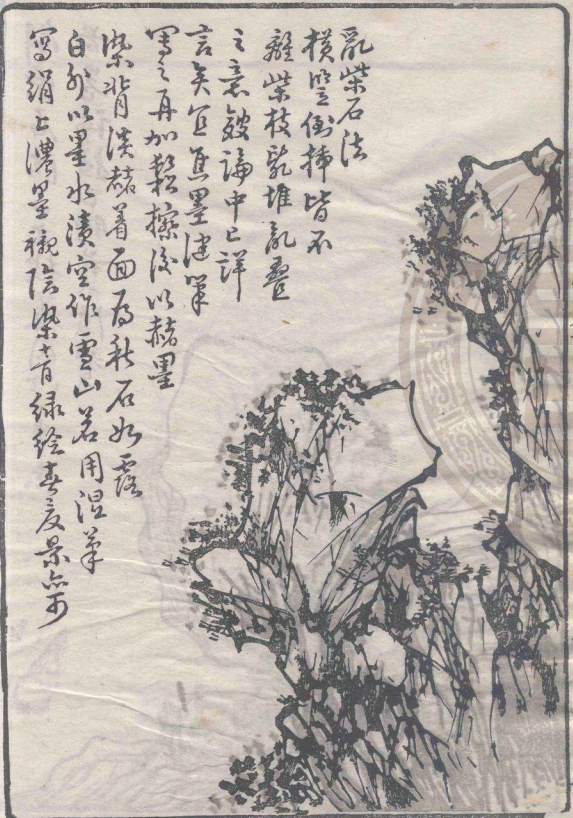 亂柴石法
橫竪倒揷皆不
離柴枝亂堆亂疊
之意皴論中已詳
言矣宜焦墨健筆
寫之再加鬆擦後以赭墨
染背淡赭着面爲秋石如露
白外以墨水漬空作雪山若用溼筆
寫絹上濃墨襯陰染靑綠繪春夏景亦可